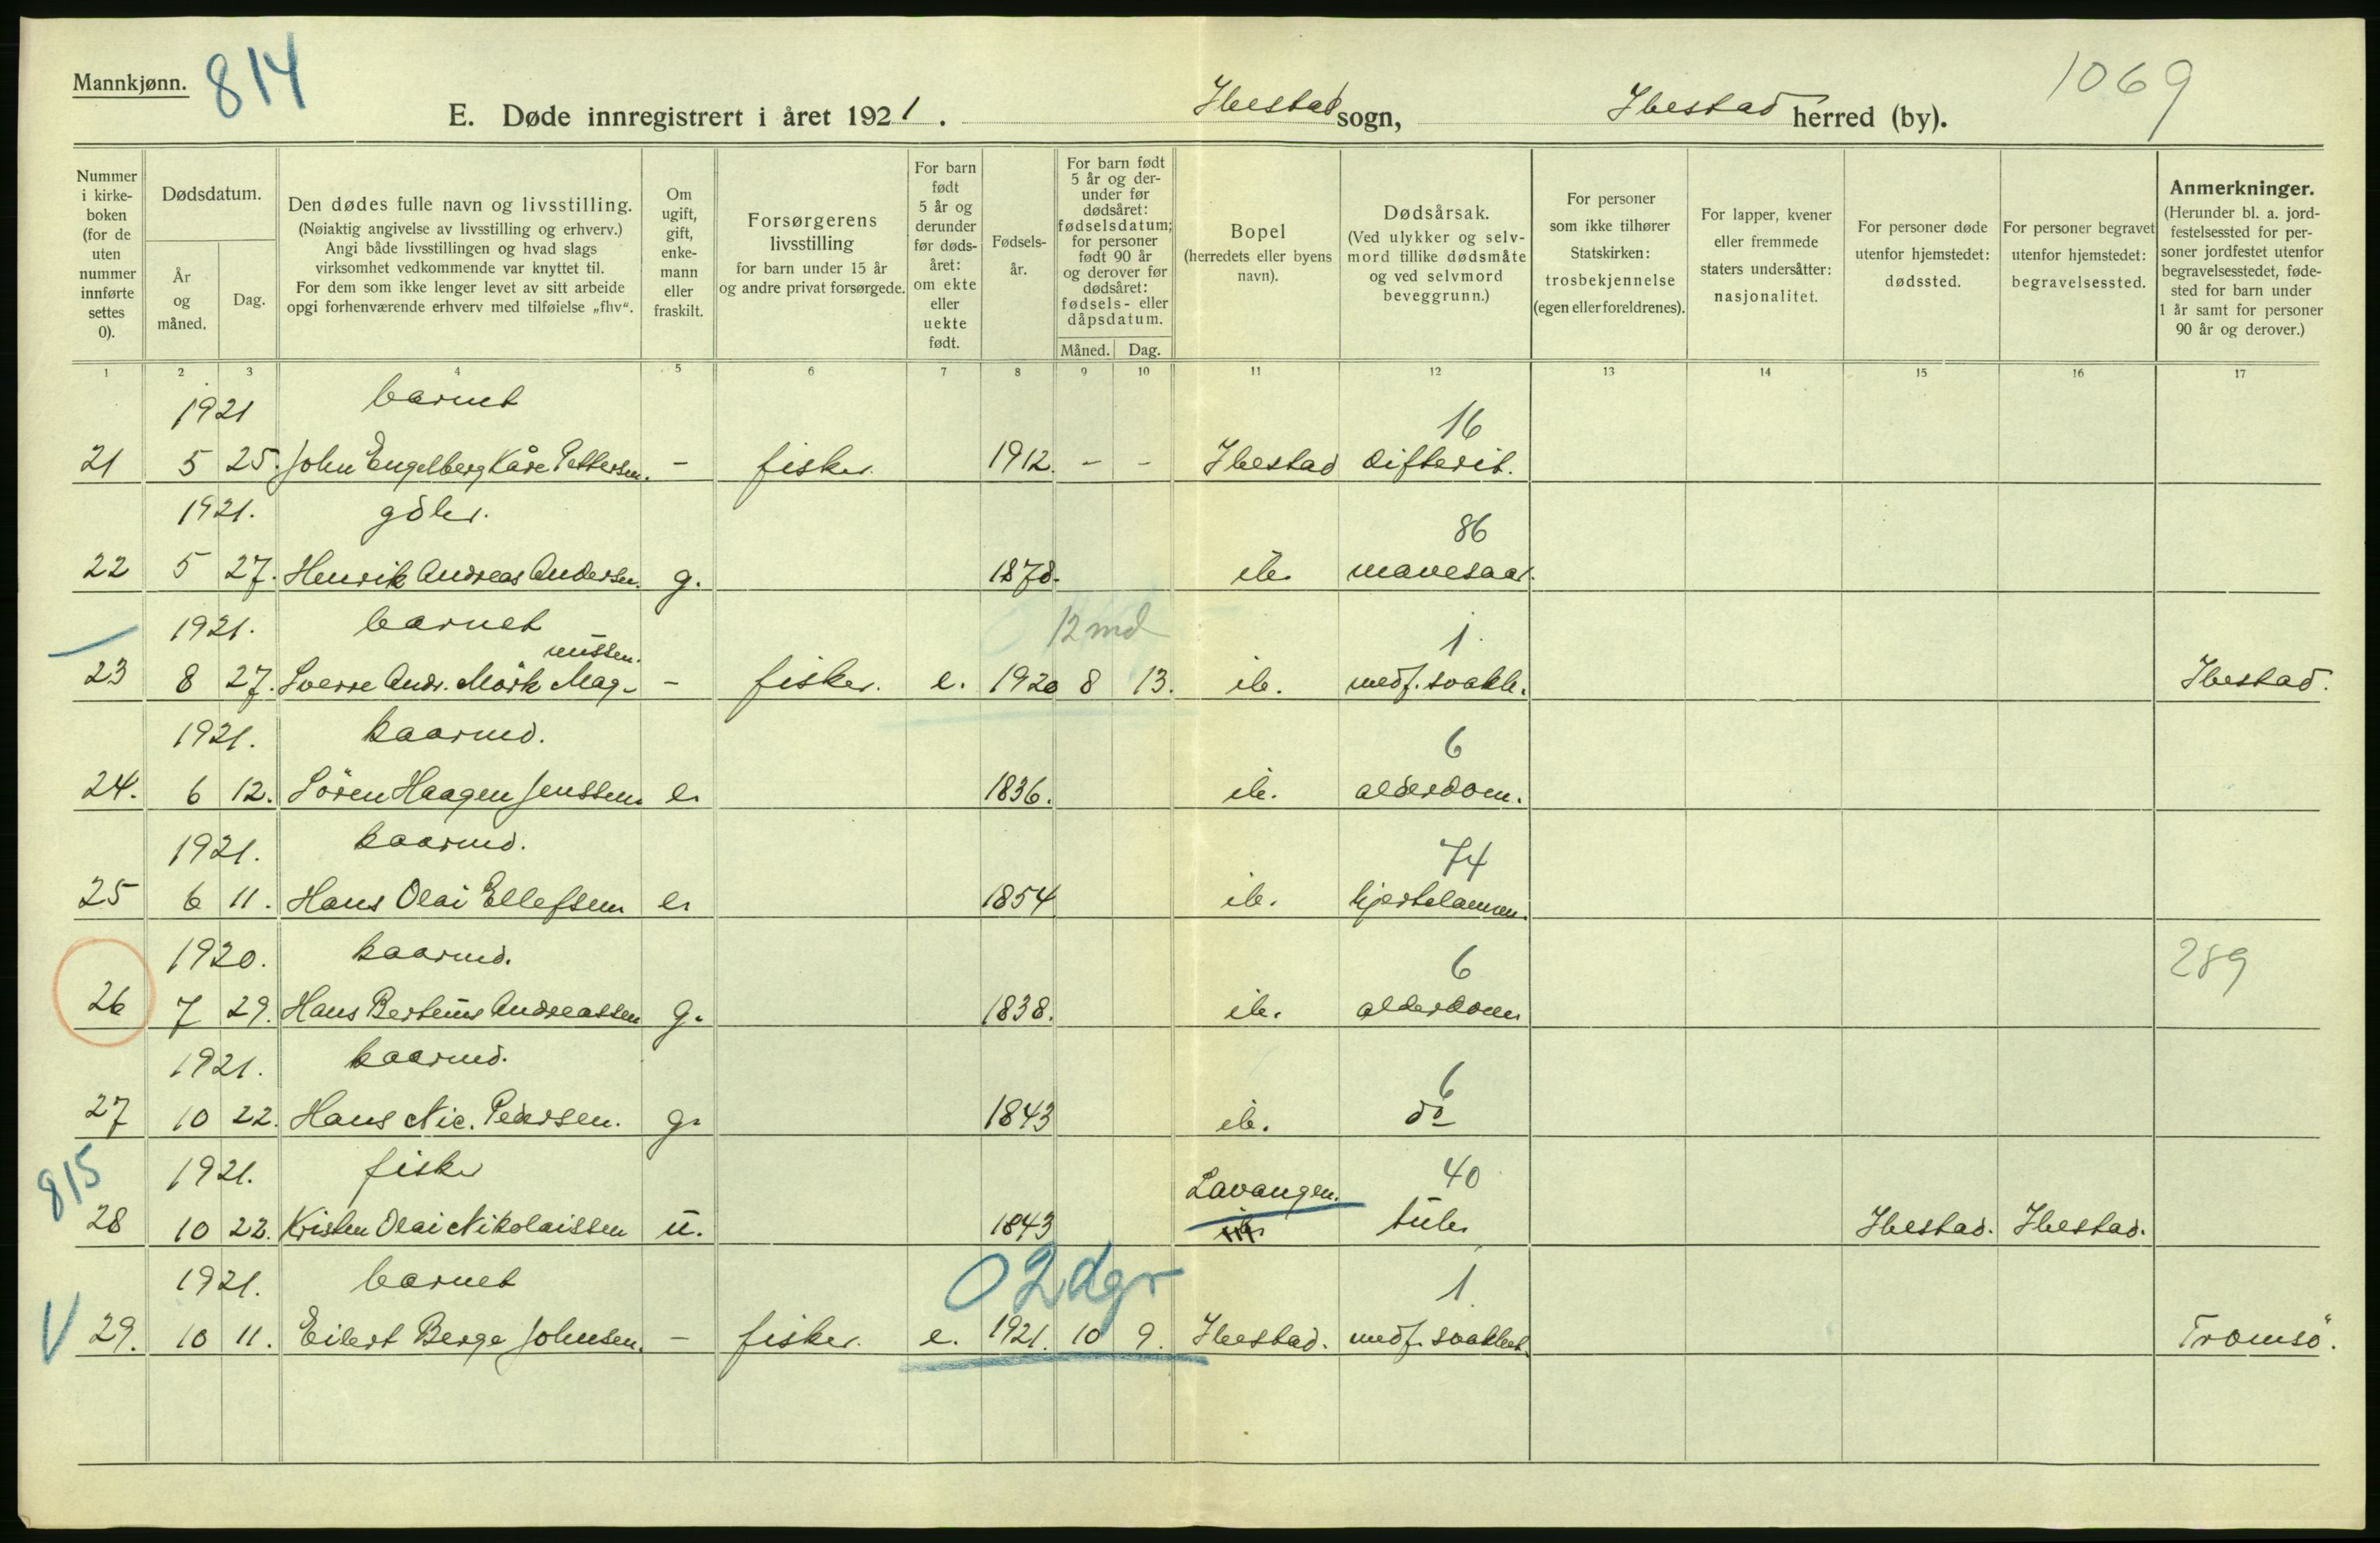 Mannkjønn.
814
1069
E. Døde innregistrert i året 1921. Ibestad sogn, Ibestad herred (by).
Nummer i kirkeboken (for de uten nummer innførte settes 0).
Dødsdatum.
År og måned.
Dag.
Den dødes fulle navn og livsstilling.
(Nøiaktig angivelse av livsstilling og erhverv.)
Angi både livsstillingen og hvad slags
virksomhet vedkommende var knyttet til.
For dem som ikke lenger levet av sitt arbeide
opgi forhenværende erhverv med tilføielse „fhv“.
Om ugift, gift, enkemann eller fraskilt.
Forsørgerens livsstilling
for barn under 15 år
og andre privat forsørgede.
For barn født 5 år og derunder før dødsåret: om ekte eller uekte født.
Fødselsår.
For barn født 5 år og derunder før dødsåret: fødselsdatum; for personer født 90 år og derover før dødsåret: fødsels- eller dåpsdatum.
Måned. Dag.
Bopel
(herredets eller byens navn).
Dødsårsak.
(Ved ulykker og selvmord tillike dødsmåte og ved selvmord beveggrunn.)
For personer som ikke tilhører Statskirken: trosbekjennelse (egen eller foreldrenes).
For lapper, kvener eller fremmede staters undersåtter: nasjonalitet.
For personer døde utenfor hjemstedet: dødssted.
For personer begravet utenfor hjemstedet: begravelsessted.
Anmerkninger.
(Herunder bl. a. jordfestelsessted for personer jordfestet utenfor begravelsesstedet, fødested for barn under 1 år samt for personer 90 år og derover.)
1 2 3 4 5 6 7 8 9 10 11 12 13 14 15 16 17
1921 barnet 16
21 5 25. John Engelberg Kåre Pettersen. - fisker. 1912. - - Ibestad difterit.
1921. gdbr. 86
22 5 27. Henrik Andreas Andersen. g. 1878. ib. mavesaar.
1921. barnet 12 md 1
nussen.
23 8 27. Sverre Andr. Mörk Mag- - fisker. e. 1920 8 13. ib. medf. svakh. Ibestad.
1921. kaarmd. 6
24. 6 12. Sören Haagen Jenssen. e. 1836. ib. alderdom.
1921. kaarmd. 74
25 6 11. Hans Olai Ellefsen e. 1854 ib. hjertelammm.
1920. kaarmd. 6 289
26 7 29. Hans Berteus Andreassen g. 1838. ib. alderdom
1921. kaarmd. 6
27 10 22. Hans Nic. Pedersen. g. 1843 ib. do
815
1921. fisker Lavangen. 40
28 10 22. Kristen Olai Nikolaissen u. 1843 ib. tub. Ibestad. Ibestad.
1921. barnet 0 2 dgr 1
V 29. 10 11. Eilert Berge Johnsen. - fisker. e. 1921. 10 9. Ibestad. medf. svakhet. Tromsö.